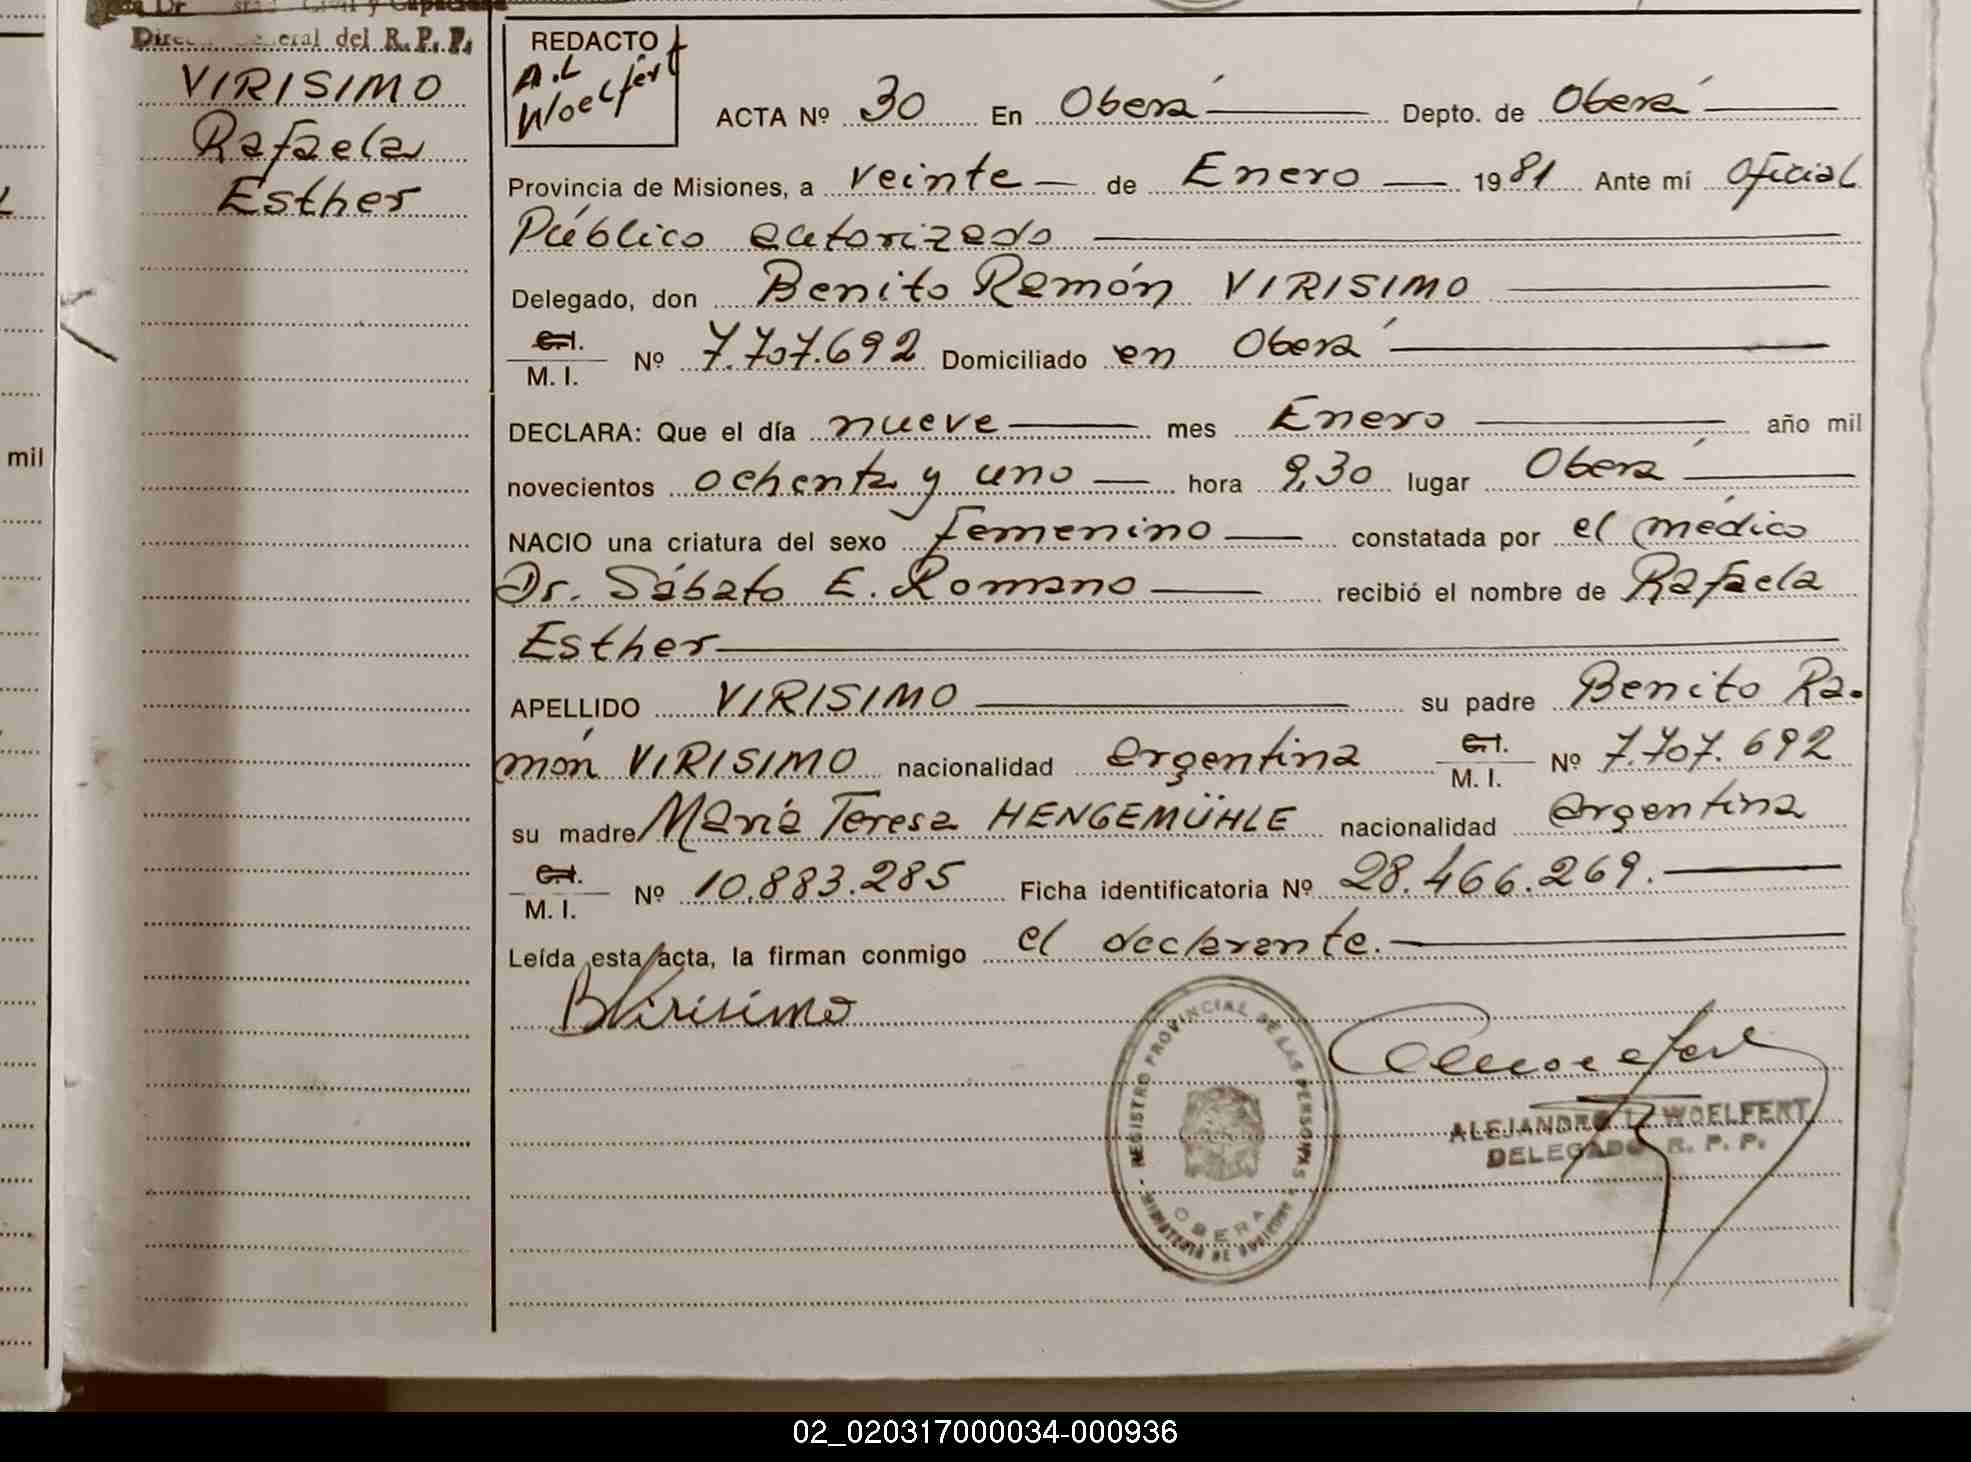 General del R. P. P.
VIRISIMO
Rafaela
Esther
mil
REDACTO
A.L
Woelfert
ACTA Nº 30 En Oberá Depto. de Oberá
Provincia de Misiones, a veinte de Enero 1981 Ante mí Oficial
Público autorizado
Delegado, don Benito Ramón VIRISIMO
C.I.
M. I. Nº 7.707.692 Domiciliado en Oberá
DECLARA: Que el día nueve mes Enero año mil
novecientos ochenta y uno hora 9,30 lugar Oberá
NACIO una criatura del sexo femenino constatada por el médico
Dr. Sábato E. Romano recibió el nombre de Rafaela
Esther
APELLIDO VIRISIMO su padre Benito Ra-
món VIRISIMO nacionalidad argentina C.I. M. I. Nº 7.707.692
su madre María Teresa HENGEMÜHLE nacionalidad argentina
C.I.
M. I. Nº 10.883.285 Ficha identificatoria Nº 28.466.269.
Leída esta acta, la firman conmigo el declarante.
BVirisimo
REGISTRO PROVINCIAL DE LAS PERSONAS
OBERA
MINISTERIO DE GOBIERNO
ALEJANDRO L. WOELFERT
DELEGADO R. P. P.
02_020317000034-000936